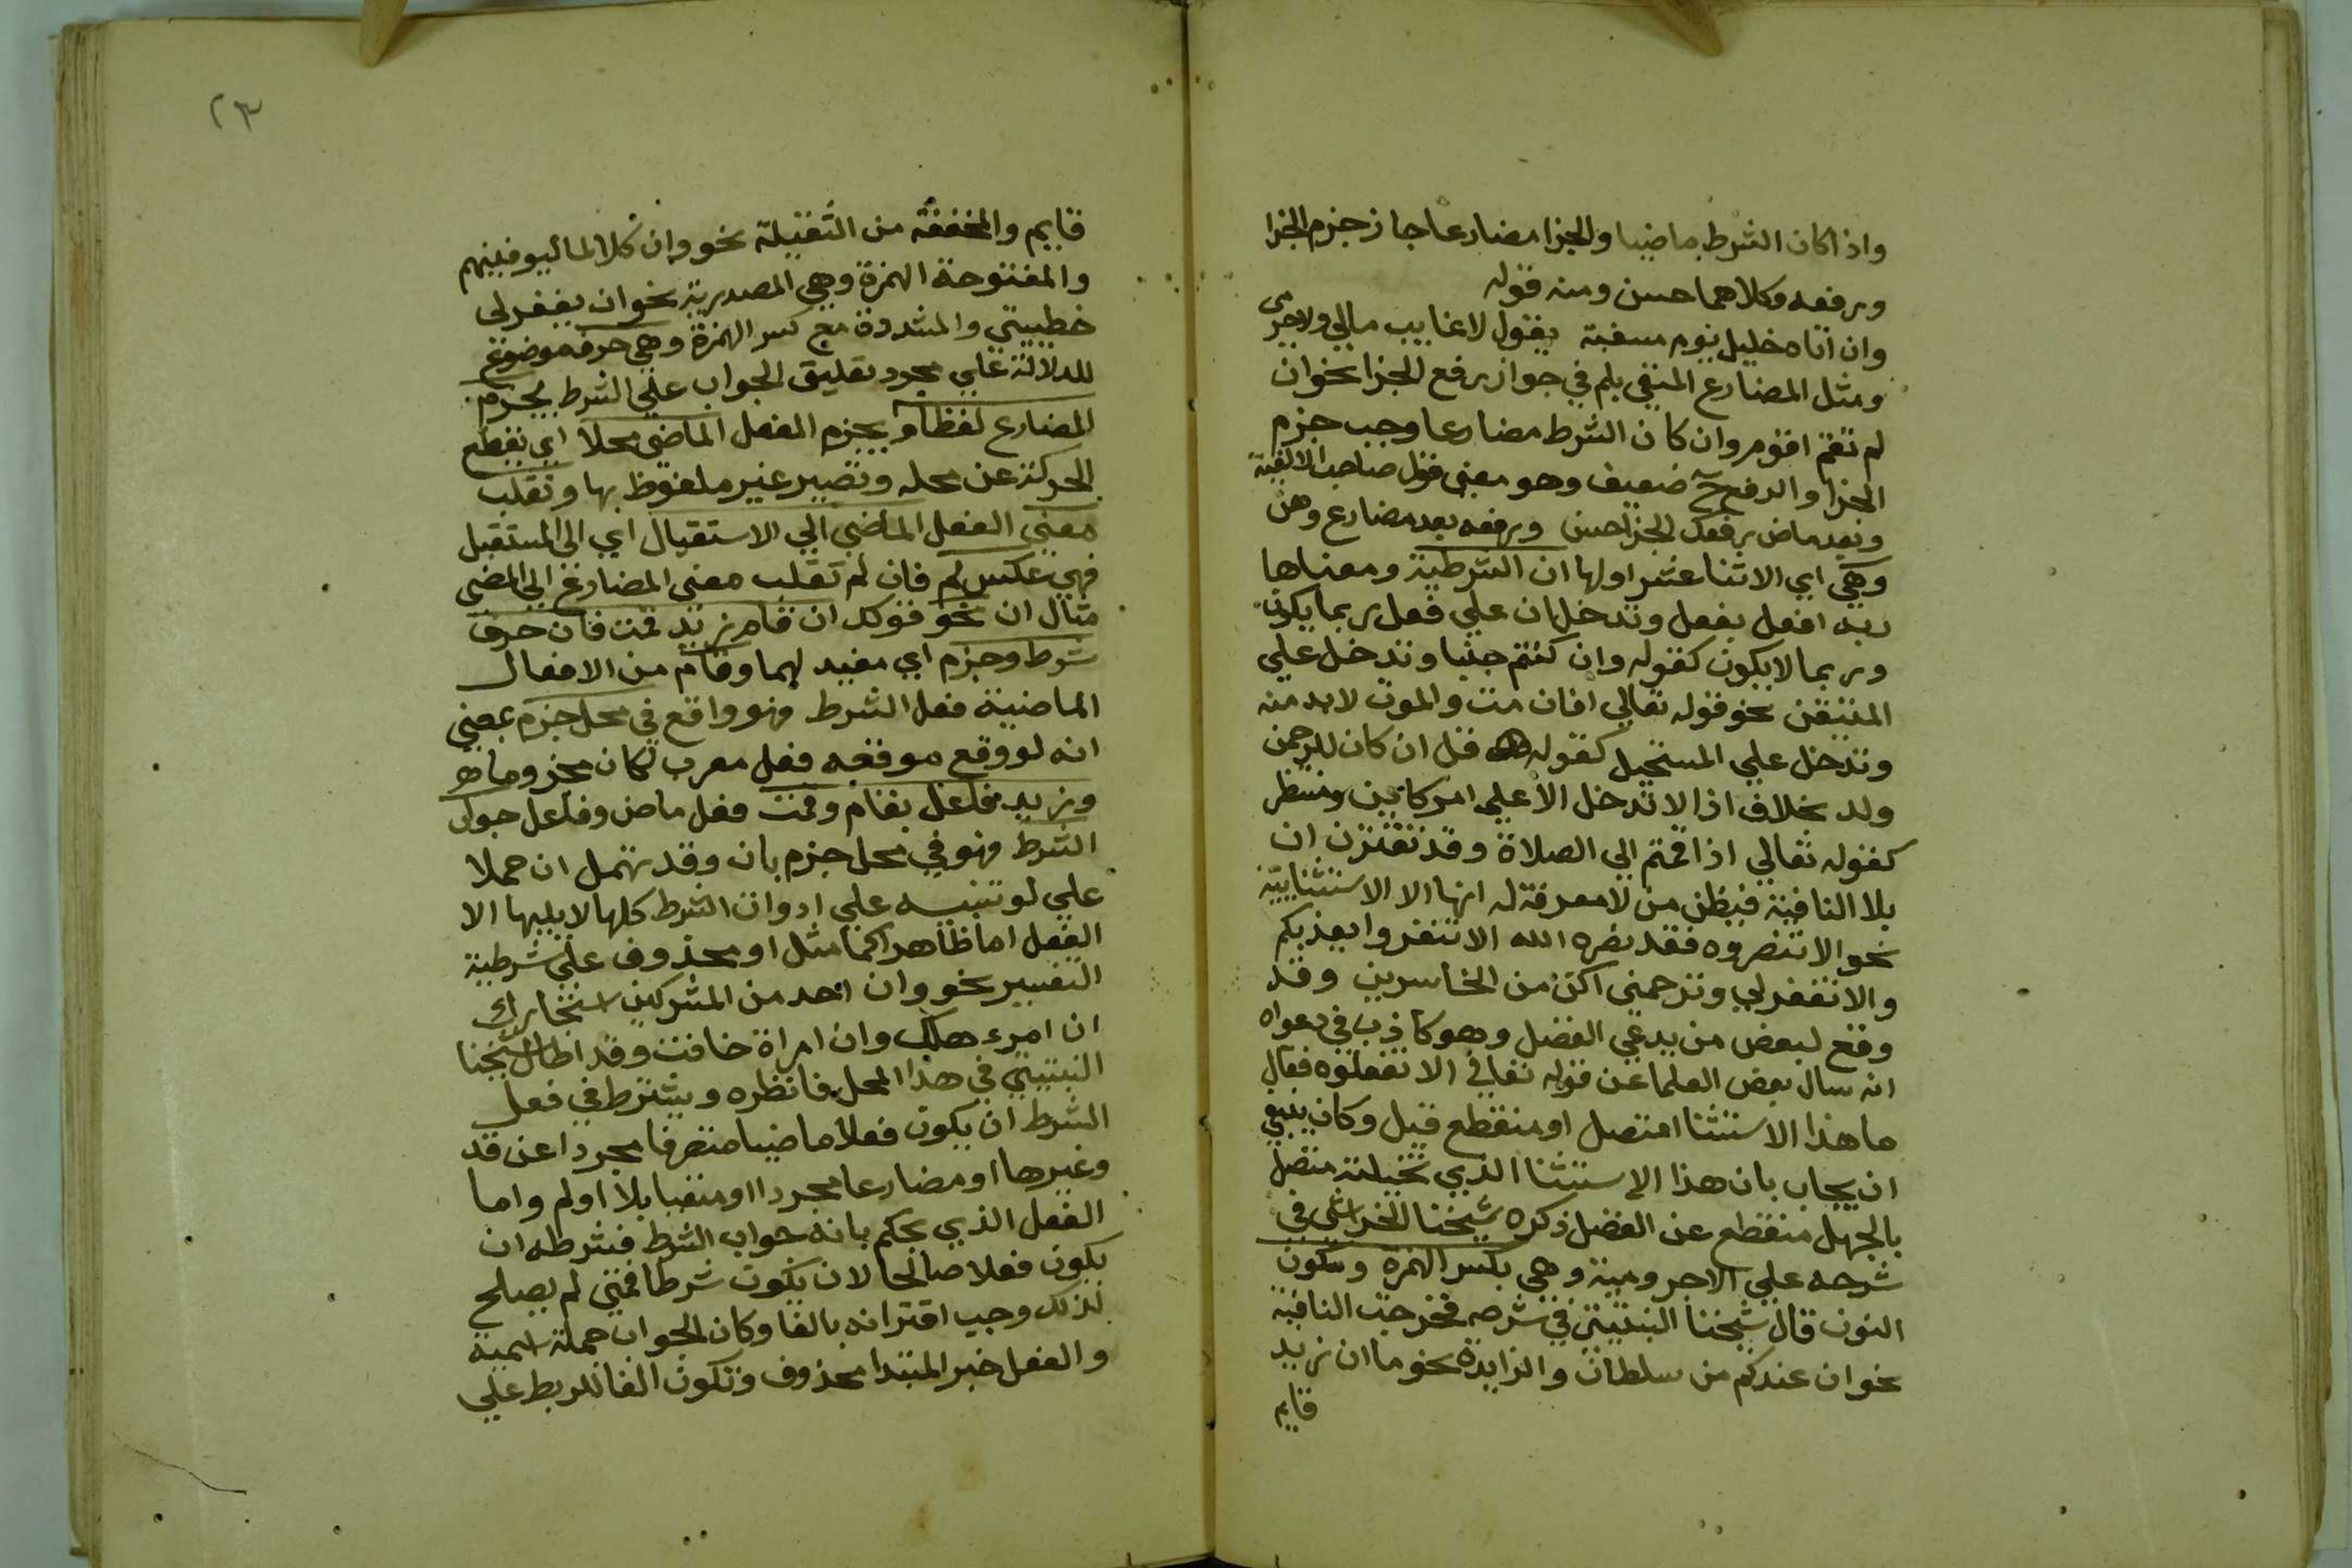 واذا كان الشرط ماضيا والجزا مضارعا جاز جزم الجزا
ورفعه وكلاهما حسن ومنه قوله
وان اتاه خليل يوم مسغبة يقول لا غايب مالي ولا حرمى
ومثل المضارع المنفي بلم في جواز رفع الجزا نحو ان
لم تقم اقوم وان كان الشرط مضارعا وجب جزم
الجزا والرفع ح ضعيف وهو معنى قول صاحب الالفية
وبعد ماض رفعك الجزا حسن ورفعه بعد مضارع وهن
وهي اي الاثنا عشر اولها ان الشرطية ومعناها
افعل بفعل وتدخل ان علي فعل ربما يكون
وربما لا يكون كقوله وان كنتم جنبا وتدخل علي
المتيقن نحو قوله تعالي افان مت والموت لا بد منه
وتدخل علي المستحيل كقوله قل ان كان للرحمن
ولد بخلاف اذا لا تدخل الا علي امر كاين ومنتظر
كقوله تعالي اذا قمتم الي الصلاة وقد تقترن ان
بلا النافية فيظن من لا معرفة له انها الا الاستثنايية
نحو الا تنصروه فقد نصره الله الا تنفروا يعذبكم
والا تغفر لي وترحمني اكن من الخاسرين وقد
وقع لبعض من يدعي الفضل وهو كاذب في دعواه
انه سال بعض العلما عن قوله تعالي الا تفعلوه فقال
ما هذا الاستثنا امتصل او منقطع قيل وكان ينبغي
ان يجاب بان هذا الاستثنا الذي تخيلته متصل
بالجهل منقطع عن الفضل ذكره شيخنا الخراشي في
شرحه علي الاجرومية وهي بكسر الهمزة وسكون
النون قال شيخنا النبتيتي في شرحه فخرجت النافية
نحو ان عندكم من سلطان والزايدة نحو ما ان زيد
قايم
٢٣
قايم والمخففة من الثقيلة نحو وان كلا لما ليوفينهم
والمفتوحة الهمزة وهي المصدرية نحو ان يغفر لي
خطييتي والمشددة مع كسر الهمزة وهي حرف موضوع
للدلالة علي مجرد تعليق الجواب علي الشرط بجزم
المضارع لفظا وبجزم الفعل الماضي محلا اي بقطع
الحركة عن محله وتصيير غير ملفوظ بها وتقلب
معني الفعل الماضي الي الاستقبال اي الى المستقبل
فهي عكس لم فان لم تقلب معنى المضارع الي المضي
مثال ان نحو قولك ان قام زيد قمت فان حرف
شرط وجزم اي مفيد لهما وقام من الافعال
الماضية فعل الشرط فهو واقع في محل جزم بمعني
انه لو وقع موقعه فعل معرب لكان مجزوما هو
وزيد فاعل بقام وقمت فعل ماض وفاعل جواب
الشرط فهو في محل جزم بان وقد تهمل ان حملا
علي لو تنبيه علي ادوات الشرط كلها لا يليها الا
الفعل اما ظاهرا كما مثل او محذوف علي شرطية
التفسير نحو وان احد من المشركين استجارك
ان امرء هلك وان امراة خافت وقد اطال شيخنا
النبتيتي في هذا المحل فانظره ويشترط في فعل
الشرط ان يكون فعلا ماضيا متصرفا مجردا عن قد
وغيرها او مضارعا مجردا او منفيا بلا او لم واما
الفعل الذي يحكم بانه جواب الشرط فشرطه ان
يكون فعلا صالحا لان يكون شرطا فمتي لم يصلح
لذلك وجب اقترانه بالفا وكان الجواب جملة اسمية
والفعل خبر المبتدا محذوف وتكون الفا للربط علي